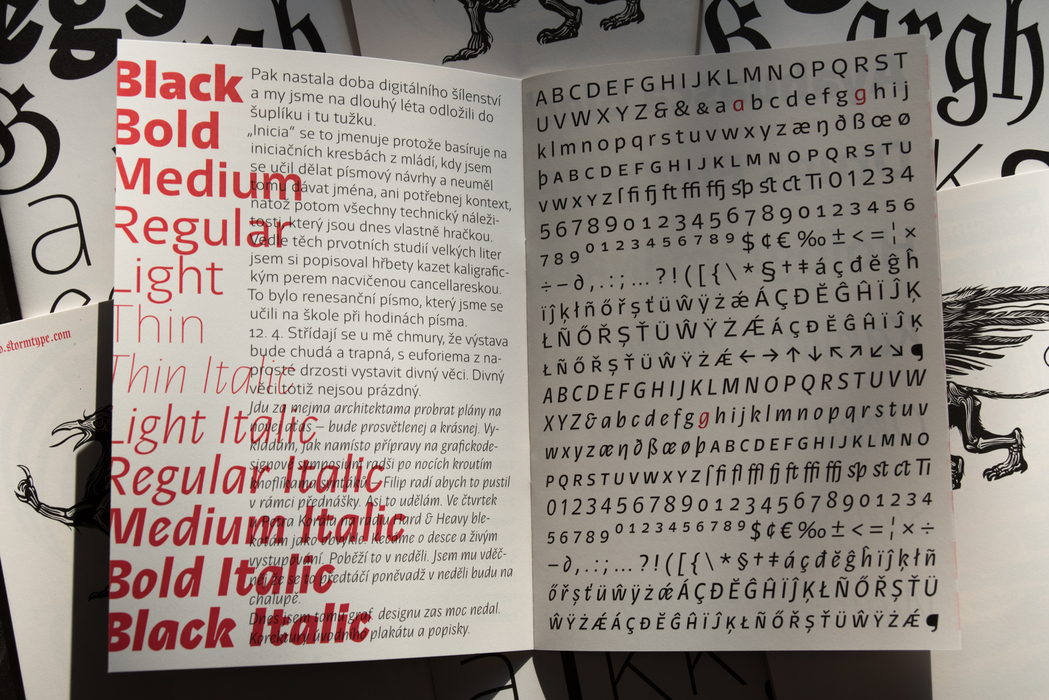 Black
Bold
Medium
Regular
Light
Thin
Thin Italic
Light Italic
Regular Italic
Medium Italic
Bold Italic
Black Italic
Pak nastala doba digitálního šílenství
a my jsme na dlouhý léta odložili do
šuplíku i tu tužku.
„Inicia“ se to jmenuje protože basíruje na
iniciačních kresbách z mládí, kdy jsem
se učil dělat písmový návrhy a neuměl
tomu dávat jména, ani potřebnej kontext,
natož potom všechny technický náleži-
tosti, který jsou dnes vlastně hračkou.
Vedle těch prvotních studií velkých liter
jsem si popisoval hřbety kazet kaligrafic-
kým perem nacvičenou cancellareskou.
To bylo renesanční písmo, který jsme se
učili na škole při hodinách písma.
12. 4. Střídají se u mě chmury, že výstava
bude chudá a trapná, s euforiema z na-
prosté drzosti vystavit divný věci. Divný
věci totiž nejsou prázdný.
Jdu za mejma architektama probrat plány na
novej – bude prosvětlenej a krásnej. Vy-
kládám, jak namísto přípravy na grafickode-
signové symposium radši po nocích kroutím
knoflíkama Filip radí abych to pustil
v rámci přednášky. Asi to udělám. Ve čtvrtek
Petra na rádiu Hard & Heavy ble-
kotám jako obvykle. Kecáme o desce a živým
vystupování. Poběží to v neděli. Jsem mu vděč-
nej že se to předtáčí poněvadž v neděli budu na
chalupě.
Dnes jsem tomu graf. designu zas moc nedal.
Korektury úvodního plakátu a popisky.
A B C D E F G H I J K L M N O P Q R S T
U V W X Y Z & & & a a b c d e f g g h i j
k l m n o p q r s t u v w x y z æ ŋ ð ß œ ø
þ A B C D E F G H I J K L M N O P Q R S T U
V W X Y Z ſ fi fj ft ffi ffj sp st ct Ti 0 1 2 3 4
5 6 7 8 9 0 1 2 3 4 5 6 7 8 9 0 1 2 3 4 5 6
7 8 9 0 1 2 3 4 5 6 7 8 9 $ ¢ € ‰ ± < = ¦ ×
÷ – ∂ , . : ; … ? ! ( [ { \ * § † ‡ á ç đ ĕ ğ ĥ
ï ĵ ķ ł ñ ő ř ş ť ü ŵ ÿ ż ǽ Á Ç Đ Ĕ Ğ Ĥ Ï Ĵ Ķ
Ł Ñ Ő Ř Ş Ť Ü Ŵ Ÿ Ż Ǽ Á Ç Đ Ĕ Ğ Ĥ Ï Ĵ Ķ
Ł Ñ Ő Ř Ş Ť Ü Ŵ Ÿ Ż Ǽ ← → ↑ ↓ ↖ ↗ ↙ ↘ ¶
A B C D E F G H I J K L M N O P Q R S T U V W
X Y Z & a b c d e f g g h i j k l m n o p q r s t u v
w x y z æ ŋ ð ß œ ø þ A B C D E F G H I J K L M N O
P Q R S T U V W X Y Z ſ fi fl ffl fj ft ffi ffj sp st ct Ti
0 1 2 3 4 5 6 7 8 9 0 1 2 3 4 5 6 7 8 9 0 1 2 3 4
5 6 7 8 9 0 1 2 3 4 5 6 7 8 9 $ ¢ € ‰ ± < = ¦ × ÷
– ∂ , . : ; … ? ! ( [ { \ * § † ‡ á ç đ ĕ ğ ĥ ï ĵ ķ ł ñ
ő ř ş ť ü ŵ ÿ ż ǽ Á Ç Đ Ĕ Ğ Ĥ Ï Ĵ Ķ Ł Ñ Ő Ř Ş Ť Ü
Ŵ Ÿ Ż Ǽ Á Ç Đ Ĕ Ğ Ĥ Ï Ĵ Ķ Ł Ñ Ő Ř Ş Ť Ü Ŵ Ÿ Ż Ǽ ¶
.stormtype.com